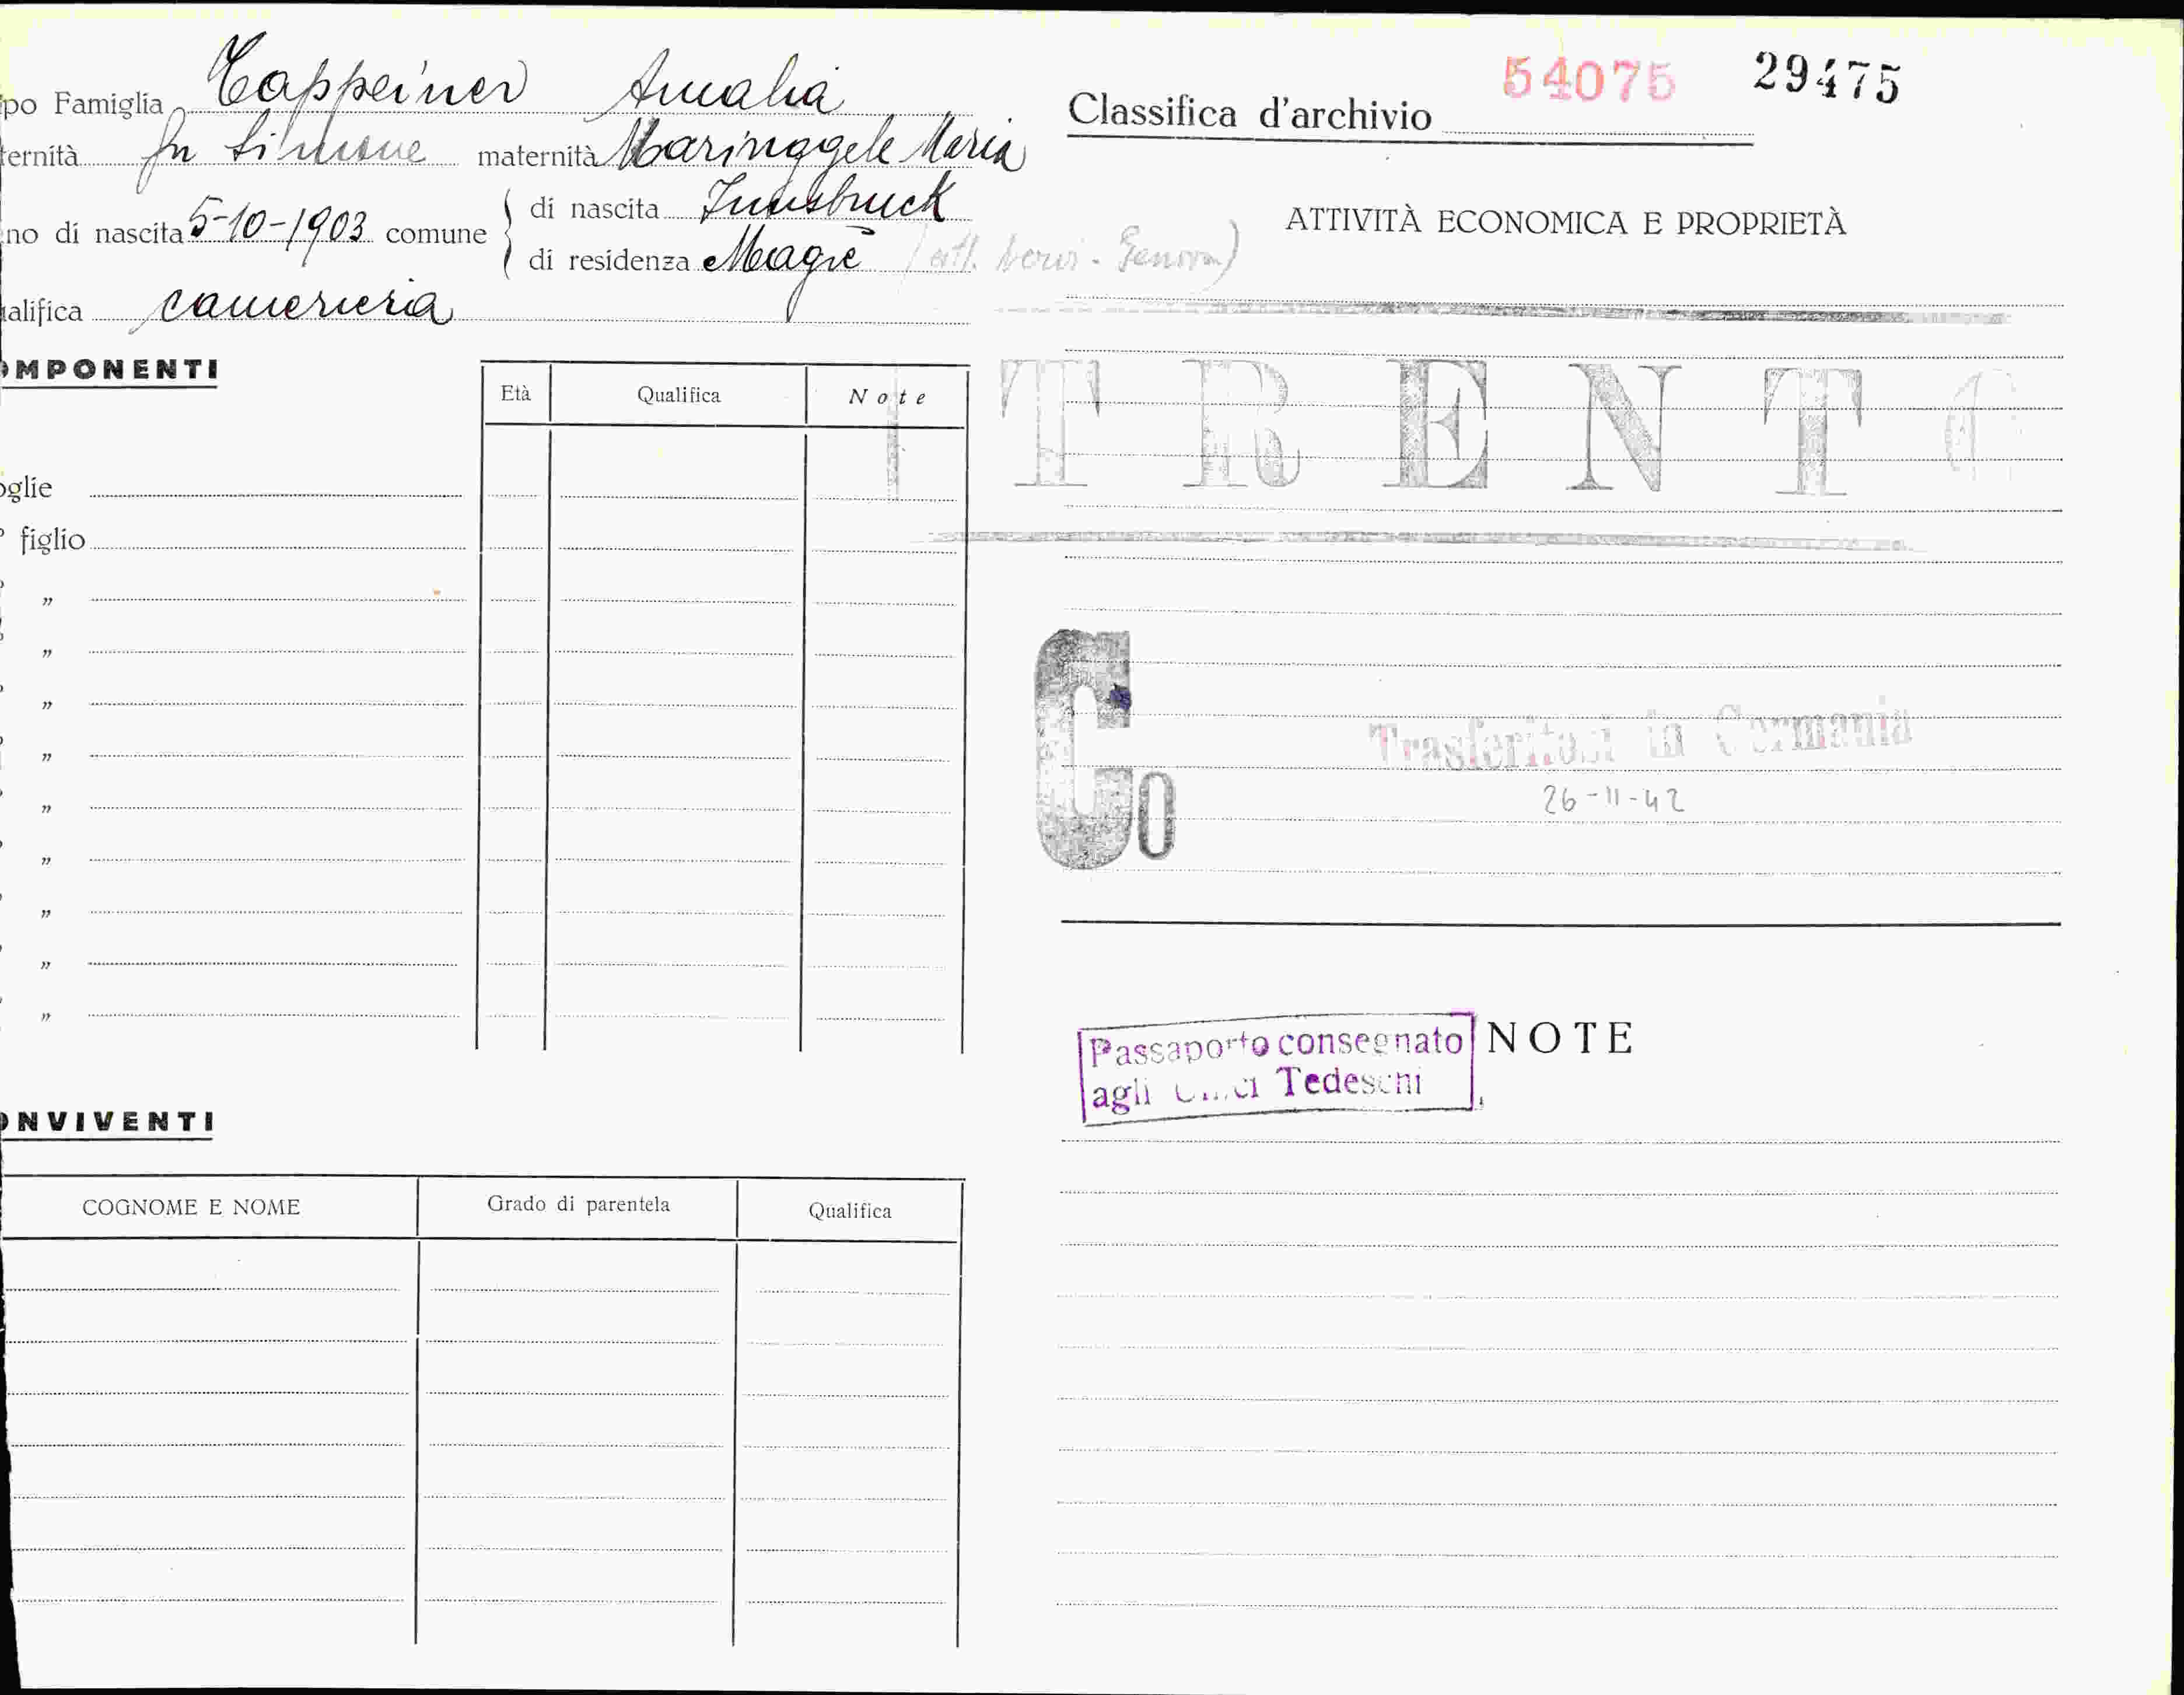 po Famiglia Tappeiner Amalia
ernità fu Simone maternità Maringgele Maria
no di nascita 5-10-1903 comune
di nascita Innsbruck
di residenza Magrè Nervi - Genova)
alifica cameriera
OMPONENTI
Età Qualifica Note
oglie
figlio
"
"
"
"
"
"
"
"
"
ONVIVENTI
COGNOME E NOME Grado di parentela Qualifica
54075 29475
Classifica d'archivio
ATTIVITÀ ECONOMICA E PROPRIETÀ
TRENTO
Co
Trasferitosi in Germania
26-11-42
Passaporto consegnato
agli Uffici Tedeschi
NOTE